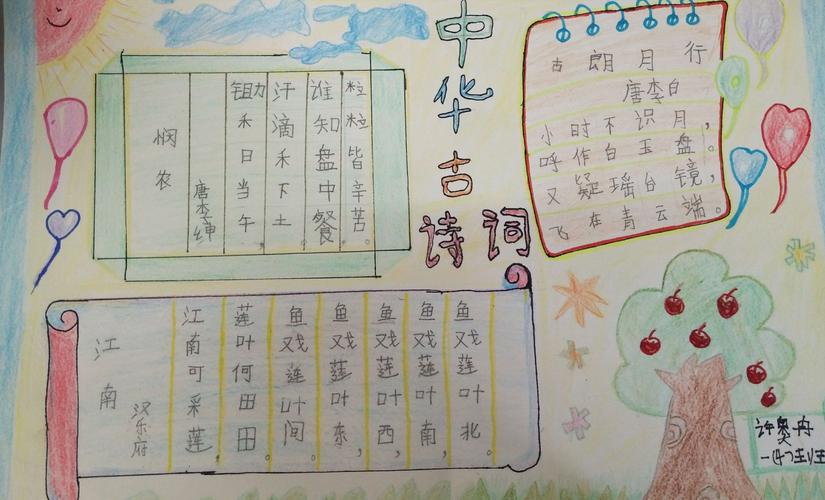 中华古诗词
悯农
唐李绅
锄禾日当午，
汗滴禾下土。
谁知盘中餐
粒粒皆辛苦。
古朗月行
唐李白
小时不识月，
呼作白玉盘。
又疑瑶台镜，
飞在青云端。
江南
汉乐府
江南可采莲，
莲叶何田田。
鱼戏莲叶间。
鱼戏莲叶东，
鱼戏莲叶西，
鱼戏莲叶南，
鱼戏莲叶北。